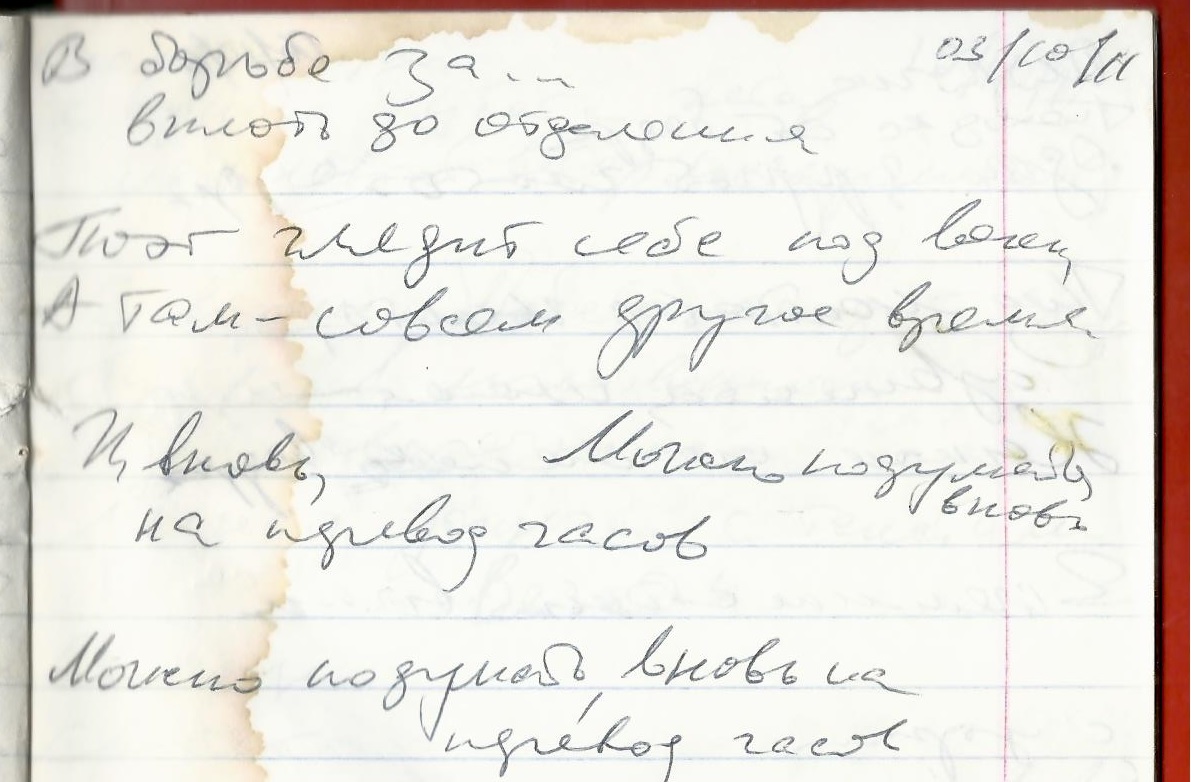 В борьбе за... 03/10/11
вплоть до отделения
Поэт глядит себе под веки,
А там – совсем другое время.
И, вновь, Можно подумать,
вновь
на перевод часов
Можно подумать, вновь на
перевод часов